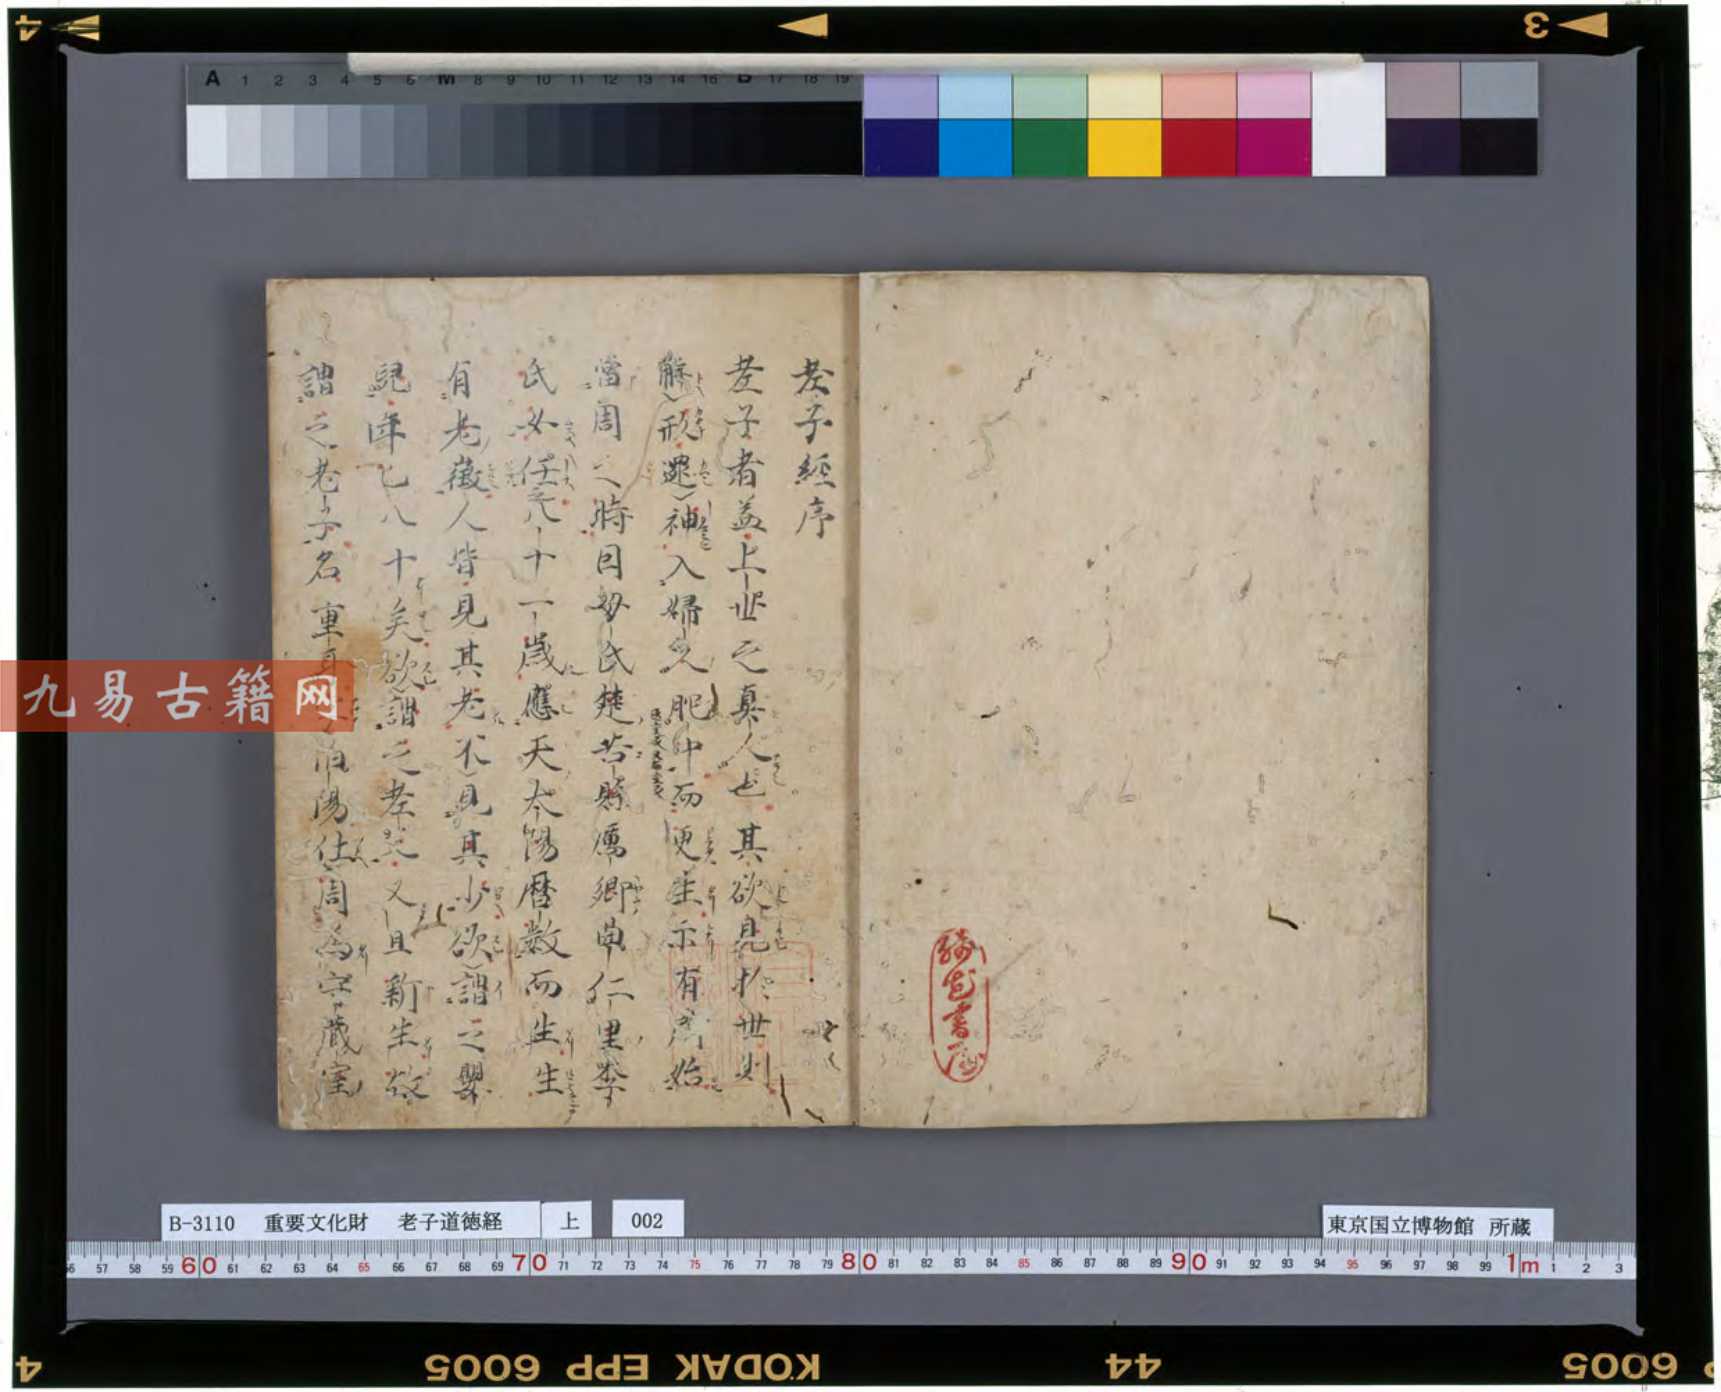 老子經序
老子者蓋上世之真人也其欲見於世則
解形還神入婦人胞中而更生示有所始
當周之時因母氏楚苦縣厲鄉曲仁里李
氏女任之八十一歲應天太陽曆數而生生
有老徵人皆見其老不見其少欲謂之嬰
兒年已八十矣欲謂之老父又且新生故
謂之老子名重耳字伯陽仕周為守藏室
綺書屋
九易古籍网
A 1 2 3 4 5 6 M 8 9 10 11 12 13 14 15 B 17 18 19
B-3110 重要文化財 老子道徳経 上 002
東京国立博物館 所蔵
56 57 58 59 60 61 62 63 64 65 66 67 68 69 70 71 72 73 74 75 76 77 78 79 80 81 82 83 84 85 86 87 88 89 90 91 92 93 94 95 96 97 98 99 1m 1 2 3
4 3
4 6005 EPP KODAK 44 6005